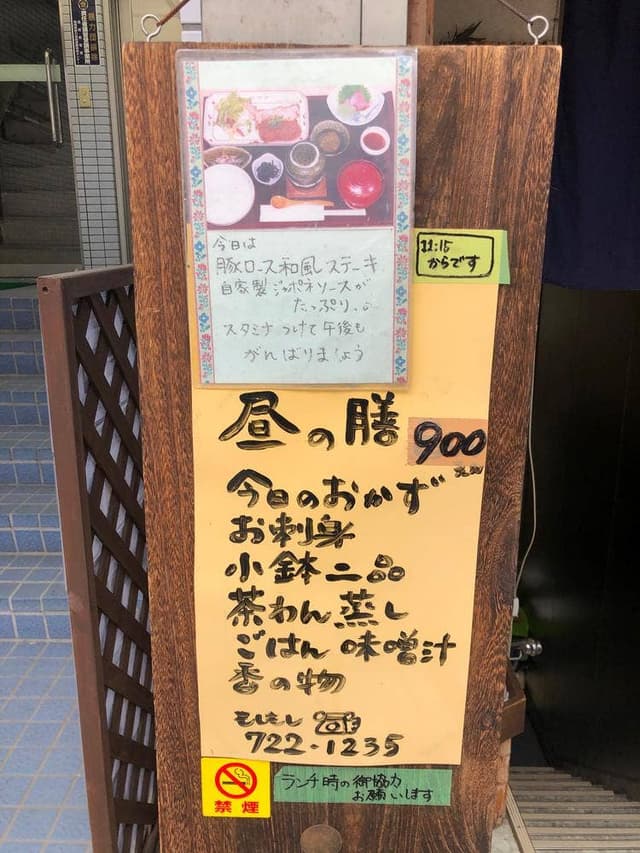 今日は
豚ロース和風ステーキ
自家製ジャポネソースが
たっぷり、
スタミナつけて午後も
がんばりましょう
11:15
からです
昼の膳 900
今日のおかず
お刺身
小鉢二品
茶わん蒸し
ごはん 味噌汁
香の物
もしもし
722-1235
禁煙
ランチ時の御協力
お願いします